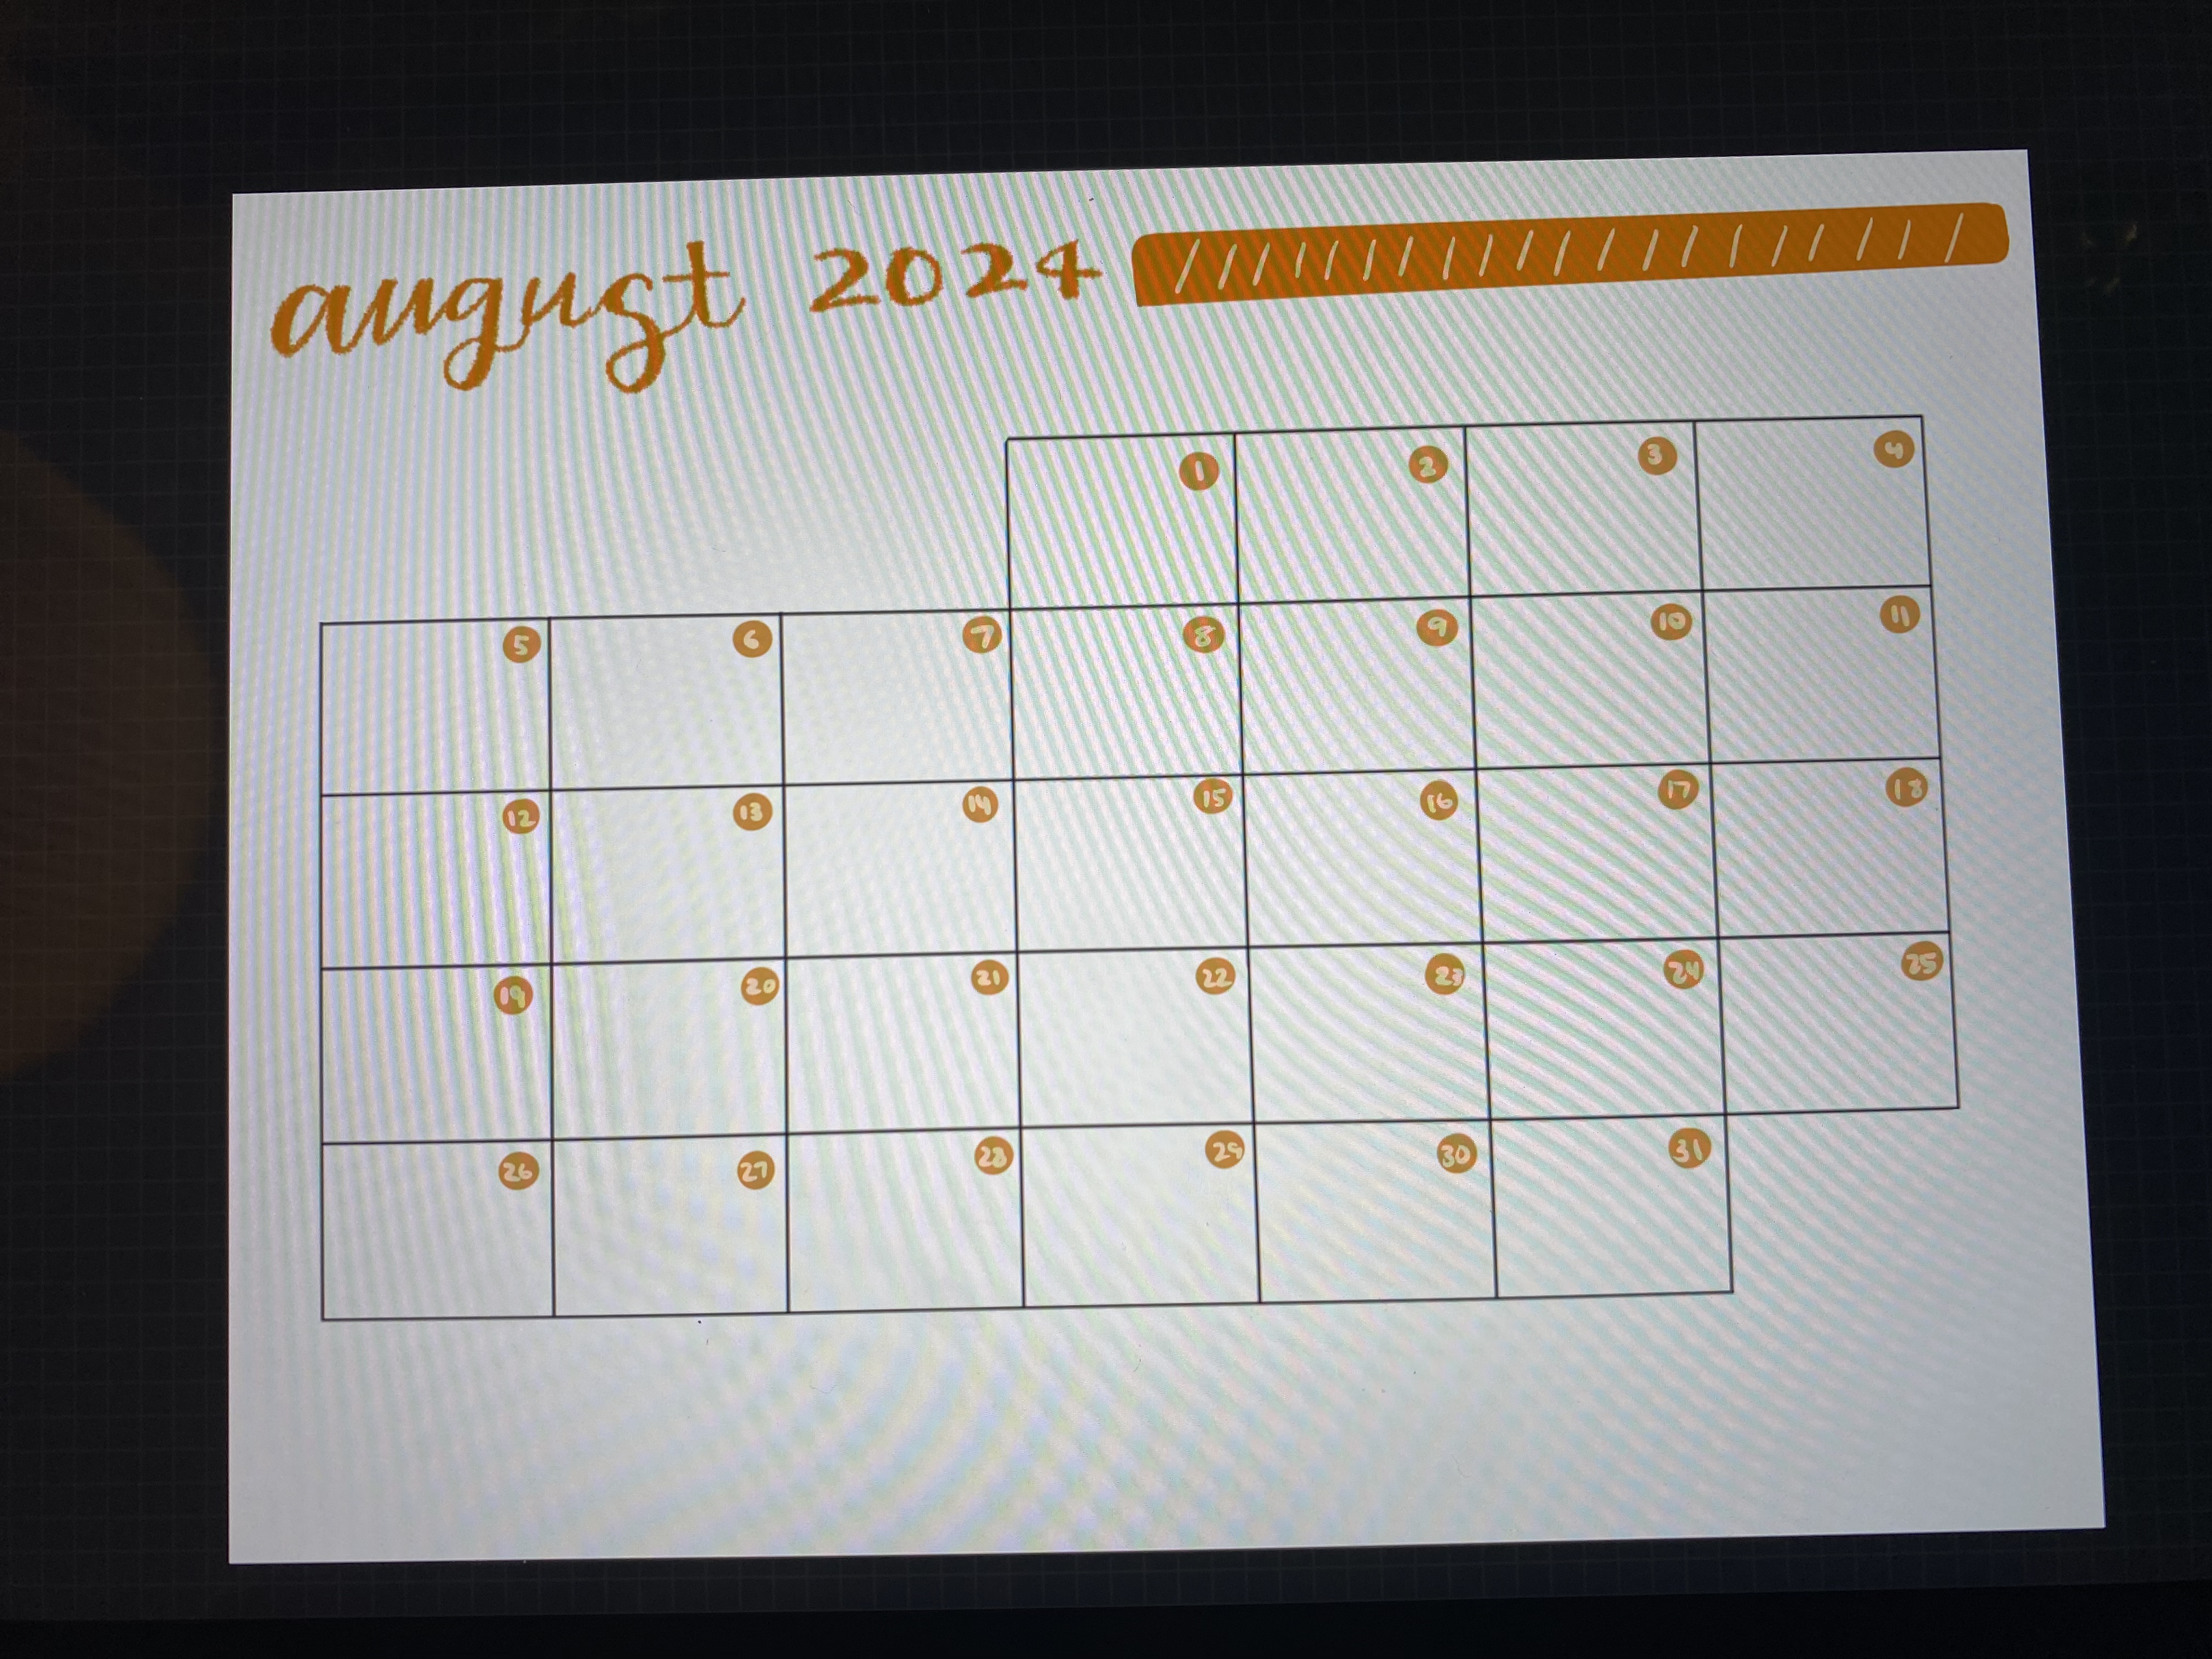 august 2024
1 2 3 4
5 6 7 8 9 10 11
12 13 14 15 16 17 18
19 20 21 22 23 24 25
26 27 28 29 30 31